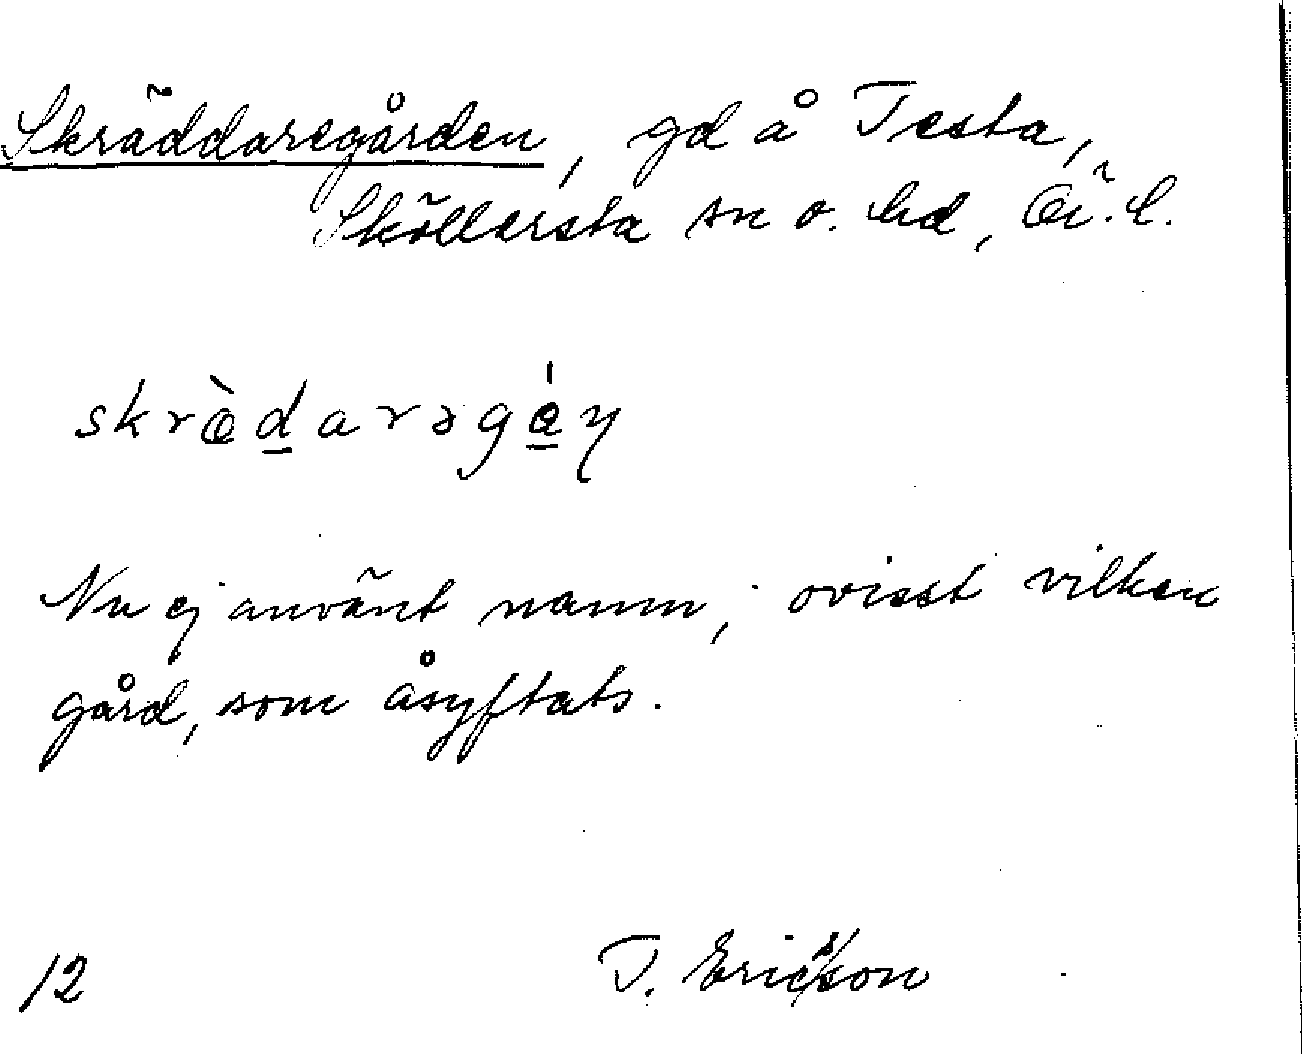 Skräddaregården, gd å Testa,
Sköllersta sn o. hd, Ör. l.
skrædarəgan
Nu ej använt namn; ovisst vilken
gård, som åsyftats.
12 T. Ericsson